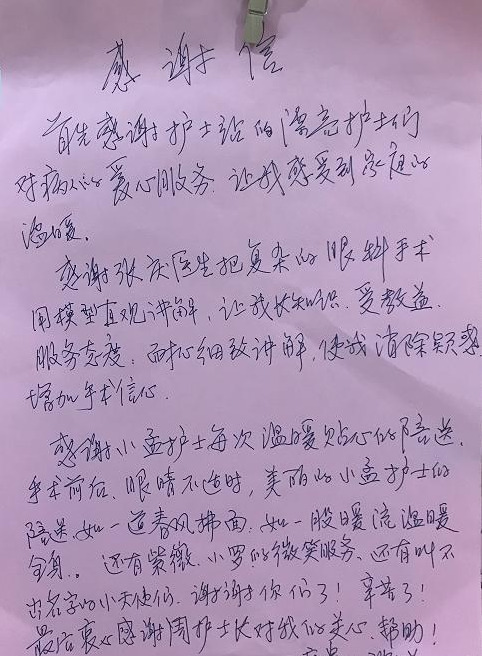 感谢信
首先感谢护士站的漂亮护士们
对病人的爱心服务.让我感受到家庭的
温暖.
感谢张庆医生把复杂的眼科手术
用模型直观讲解,让我长知识.受教益.
服务态度:耐心细致讲解,使我消除疑惑
增加手术信心.
感谢小孟护士每次温暖贴心的陪送.
手术前后、眼睛不适时,美丽的小孟护士的
陪送.如一道春风拂面.如一股暖流温暖
全身.。还有紫薇.小罗的微笑服务.还有叫不
出名字的小天使们.谢谢你们了!辛苦了!
最后衷心感谢周护士长对我们的关心.帮助!